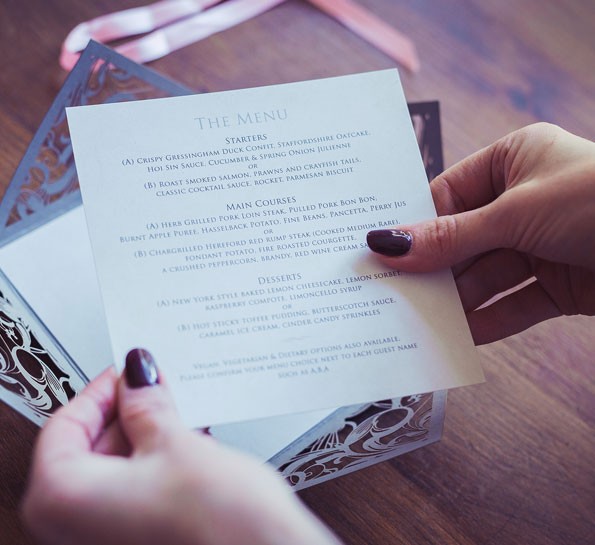 The Menu
Starters
(A) Crispy Gressingham Duck Confit, Staffordshire Oatcake,
Hoi Sin Sauce, Cucumber & Spring Onion Julienne
or
(B) Roast smoked salmon, prawns and crayfish tails,
classic cocktail sauce, rocket, parmesan biscuit
Main Courses
(A) Herb Grilled Pork Loin Steak, Pulled Pork Bon Bon,
Burnt Apple Puree, Hasselback Potato, Fine Beans, Pancetta, Perry Jus
or
(B) Chargrilled Hereford red rump steak (Cooked Medium Rare),
fondant potato, fire roasted courgette,
a crushed peppercorn, brandy, red wine cream
Desserts
(A) New York style baked lemon cheesecake, lemon sorbet,
raspberry compote, limoncello syrup
or
(B) Hot sticky toffee pudding, butterscotch sauce,
caramel ice cream, cinder candy sprinkles
Vegan, Vegetarian & Dietary options also available,
Please confirm your menu choice next to each guest name
such as A,B,A